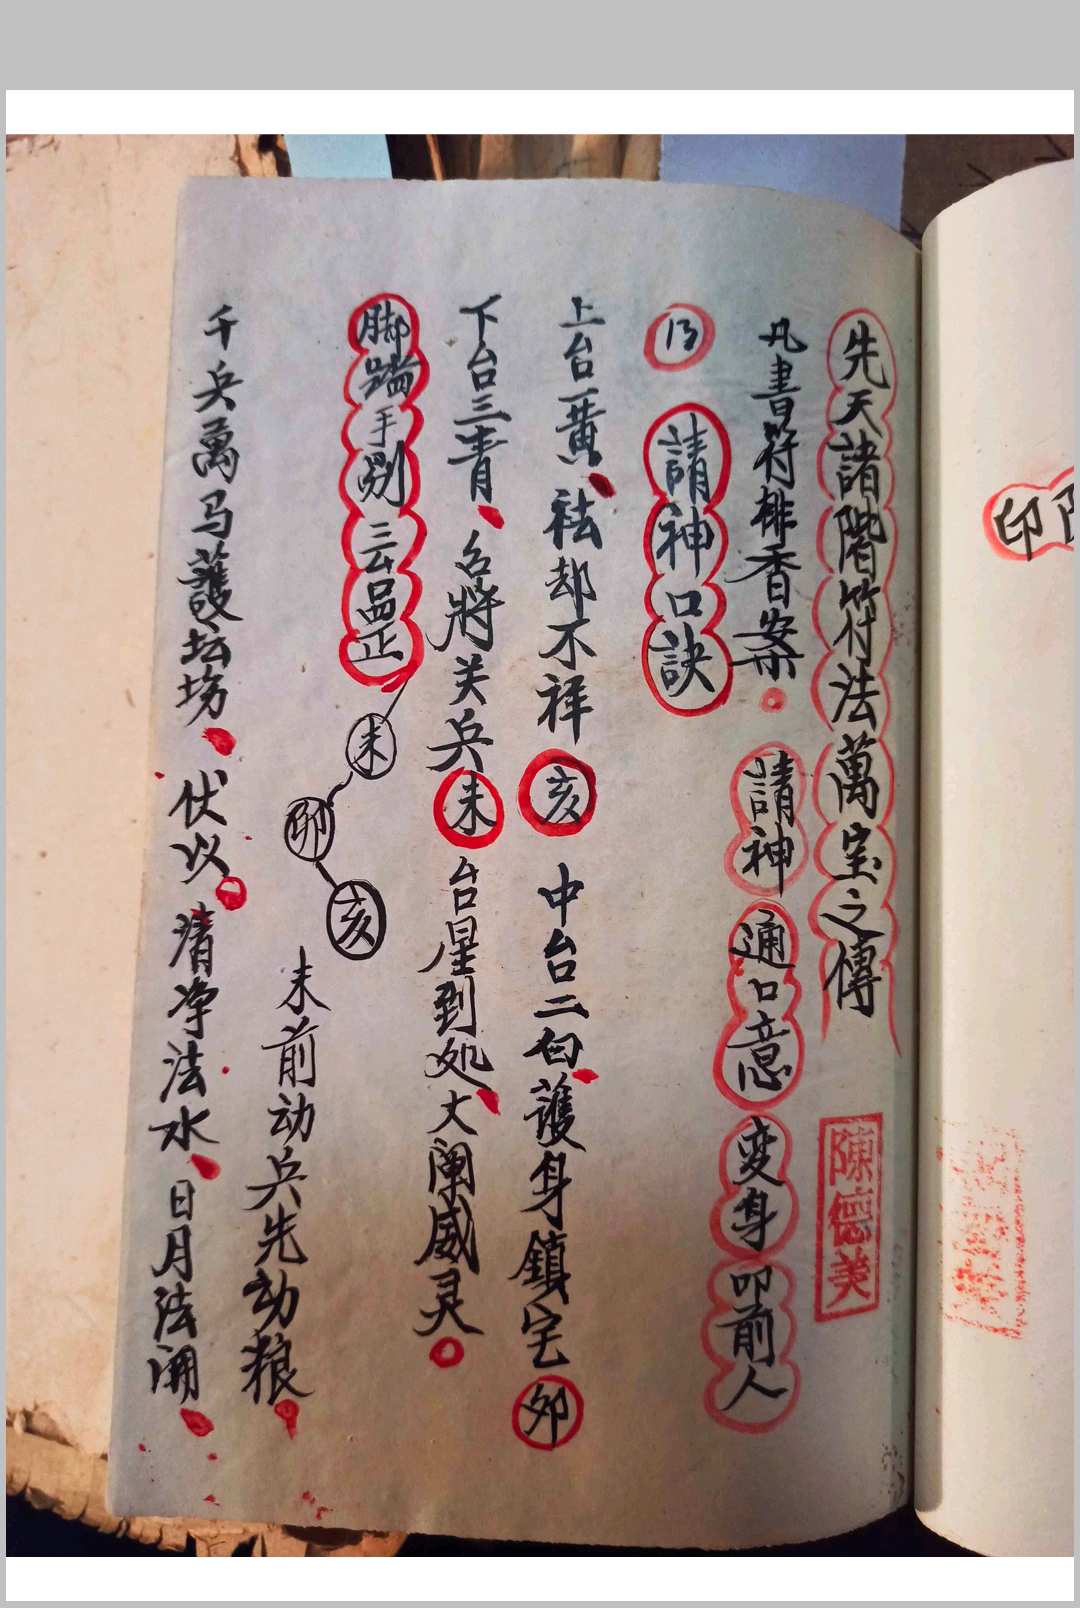 先天諸階符法萬宝之傳
陳德美
凡書符排香案。請神通口意变身叩前人
請神口訣
上台一黄、祛却不祥亥中台二白、護身鎮宅卯
下台三青、名將关兵未台星到处、大阐威灵。
脚踏手別三台品正
未
卯
亥
未前动兵先动粮。
千兵萬马護坛场、伏以。清净法水、日月法開、
印